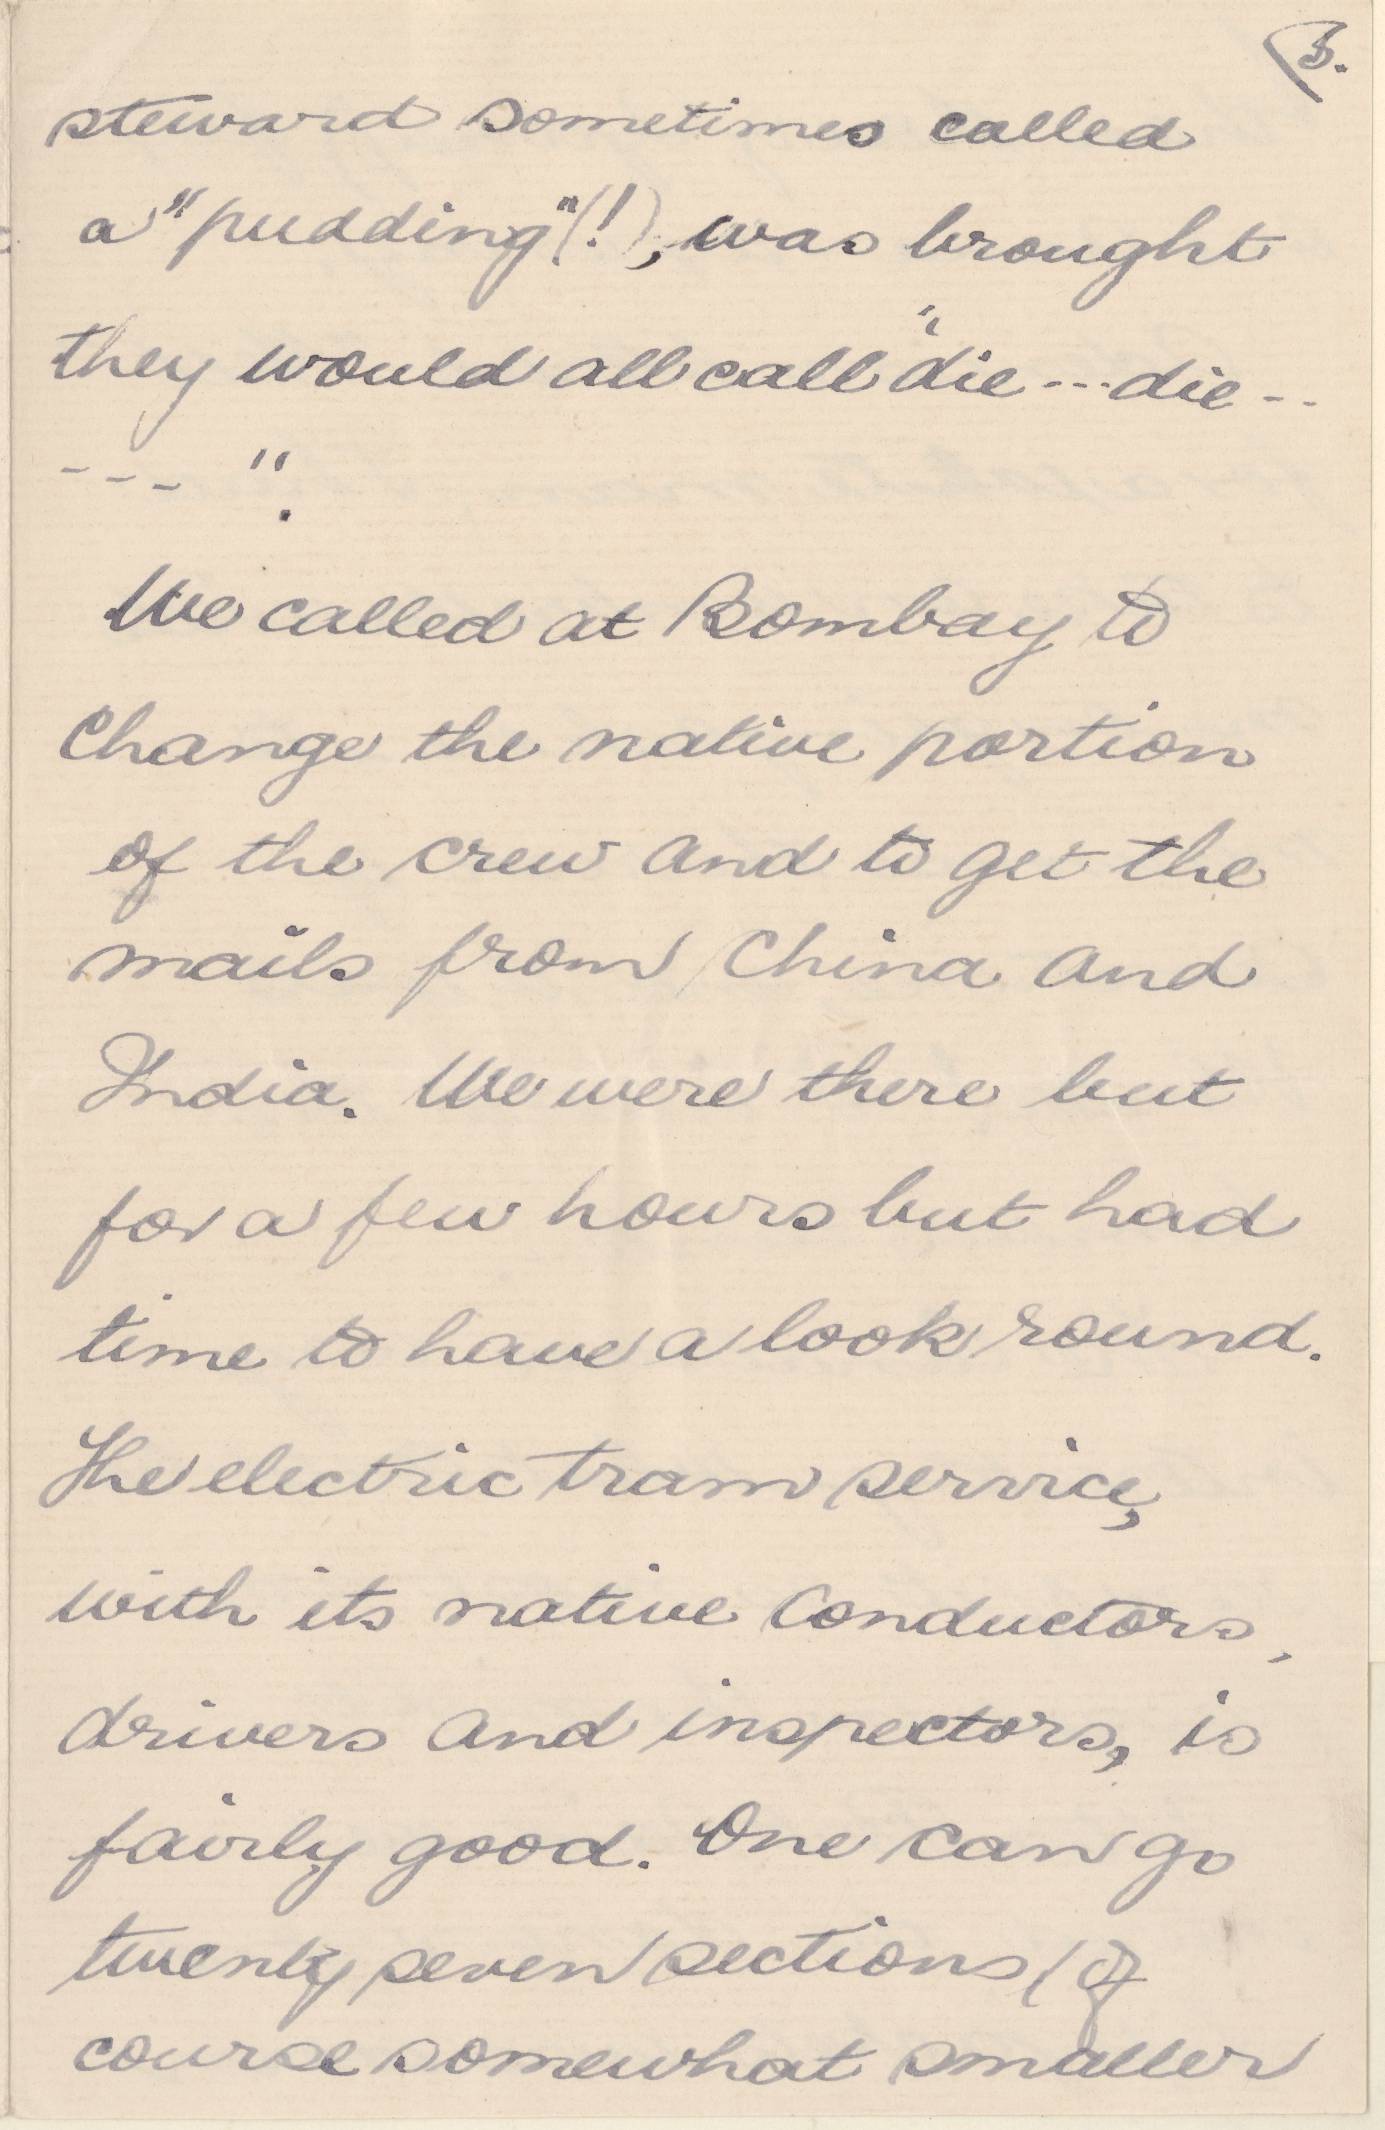 3.
steward sometimes called
a "pudding" (!), was brought
they would all call "die --- die --
--- ".
We called at Bombay to
Change the native portion
of the crew and to get the
mails from China and
India. We were there but
for a few hours but had
time to have a look round.
The electric tram service,
with its native Conductors,
drivers and inspectors, is
fairly good. One can go
twenty seven sections (of
course somewhat smaller